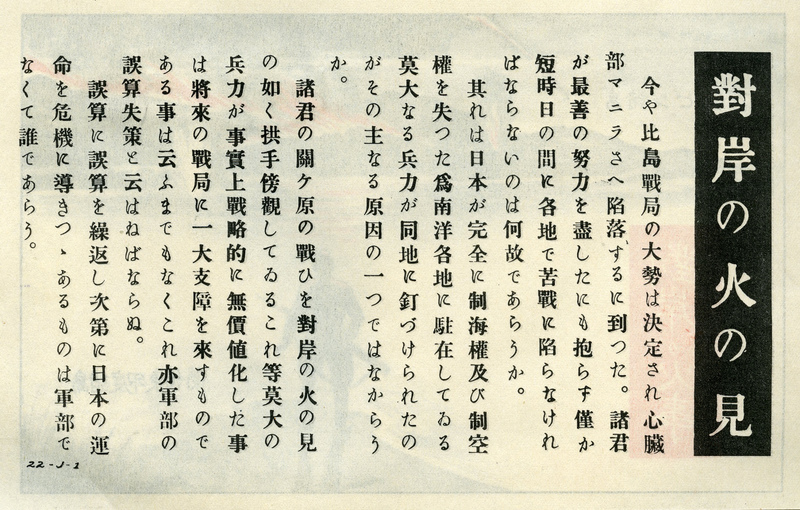 對岸の火の見
今や比島戰局の大勢は決定され心臟
部マニラさへ陷落するに到つた。諸君
が最善の努力を盡したにも拘らず僅か
短時日の間に各地で苦戰に陷らなけれ
ばならないのは何故であらうか。
其れは日本が完全に制海權及び制空
權を失つた爲南洋各地に駐在してゐる
莫大なる兵力が同地に釘づけられたの
がその主なる原因の一つではなからう
か。
諸君の關ケ原の戰ひを對岸の火の見
の如く拱手傍觀してゐるこれ等莫大の
兵力が事實上戰略的に無價値化した事
は將來の戰局に一大支障を來すもので
ある事は云ふまでもなくこれ亦軍部の
誤算失策と云はねばならぬ。
誤算に誤算を繰返し次第に日本の運
命を危機に導きつゝあるものは軍部で
なくて誰であらう。
22-J-1